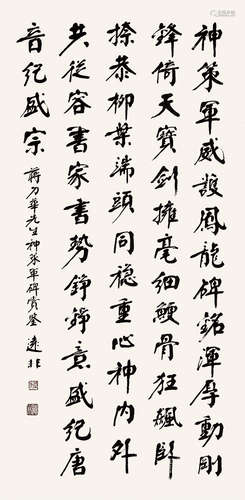 神策軍威護鳳龍碑銘渾厚動剛
鋒倚天寶劍擁毫細鯁骨狂飆卧
捺恭柳葉端頭同穩重心神内外
共從容書家書勢錚錚意盛紀唐
音紀盛宗
蔣華先生神策軍碑賞鑒 遠非